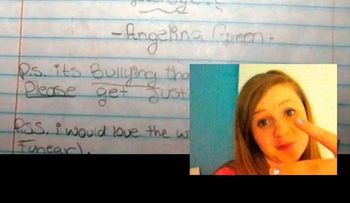 -Angelina Green-
P.s. its Bullying tha
Please get Just
P.S.S. i would love the w
Funearl).